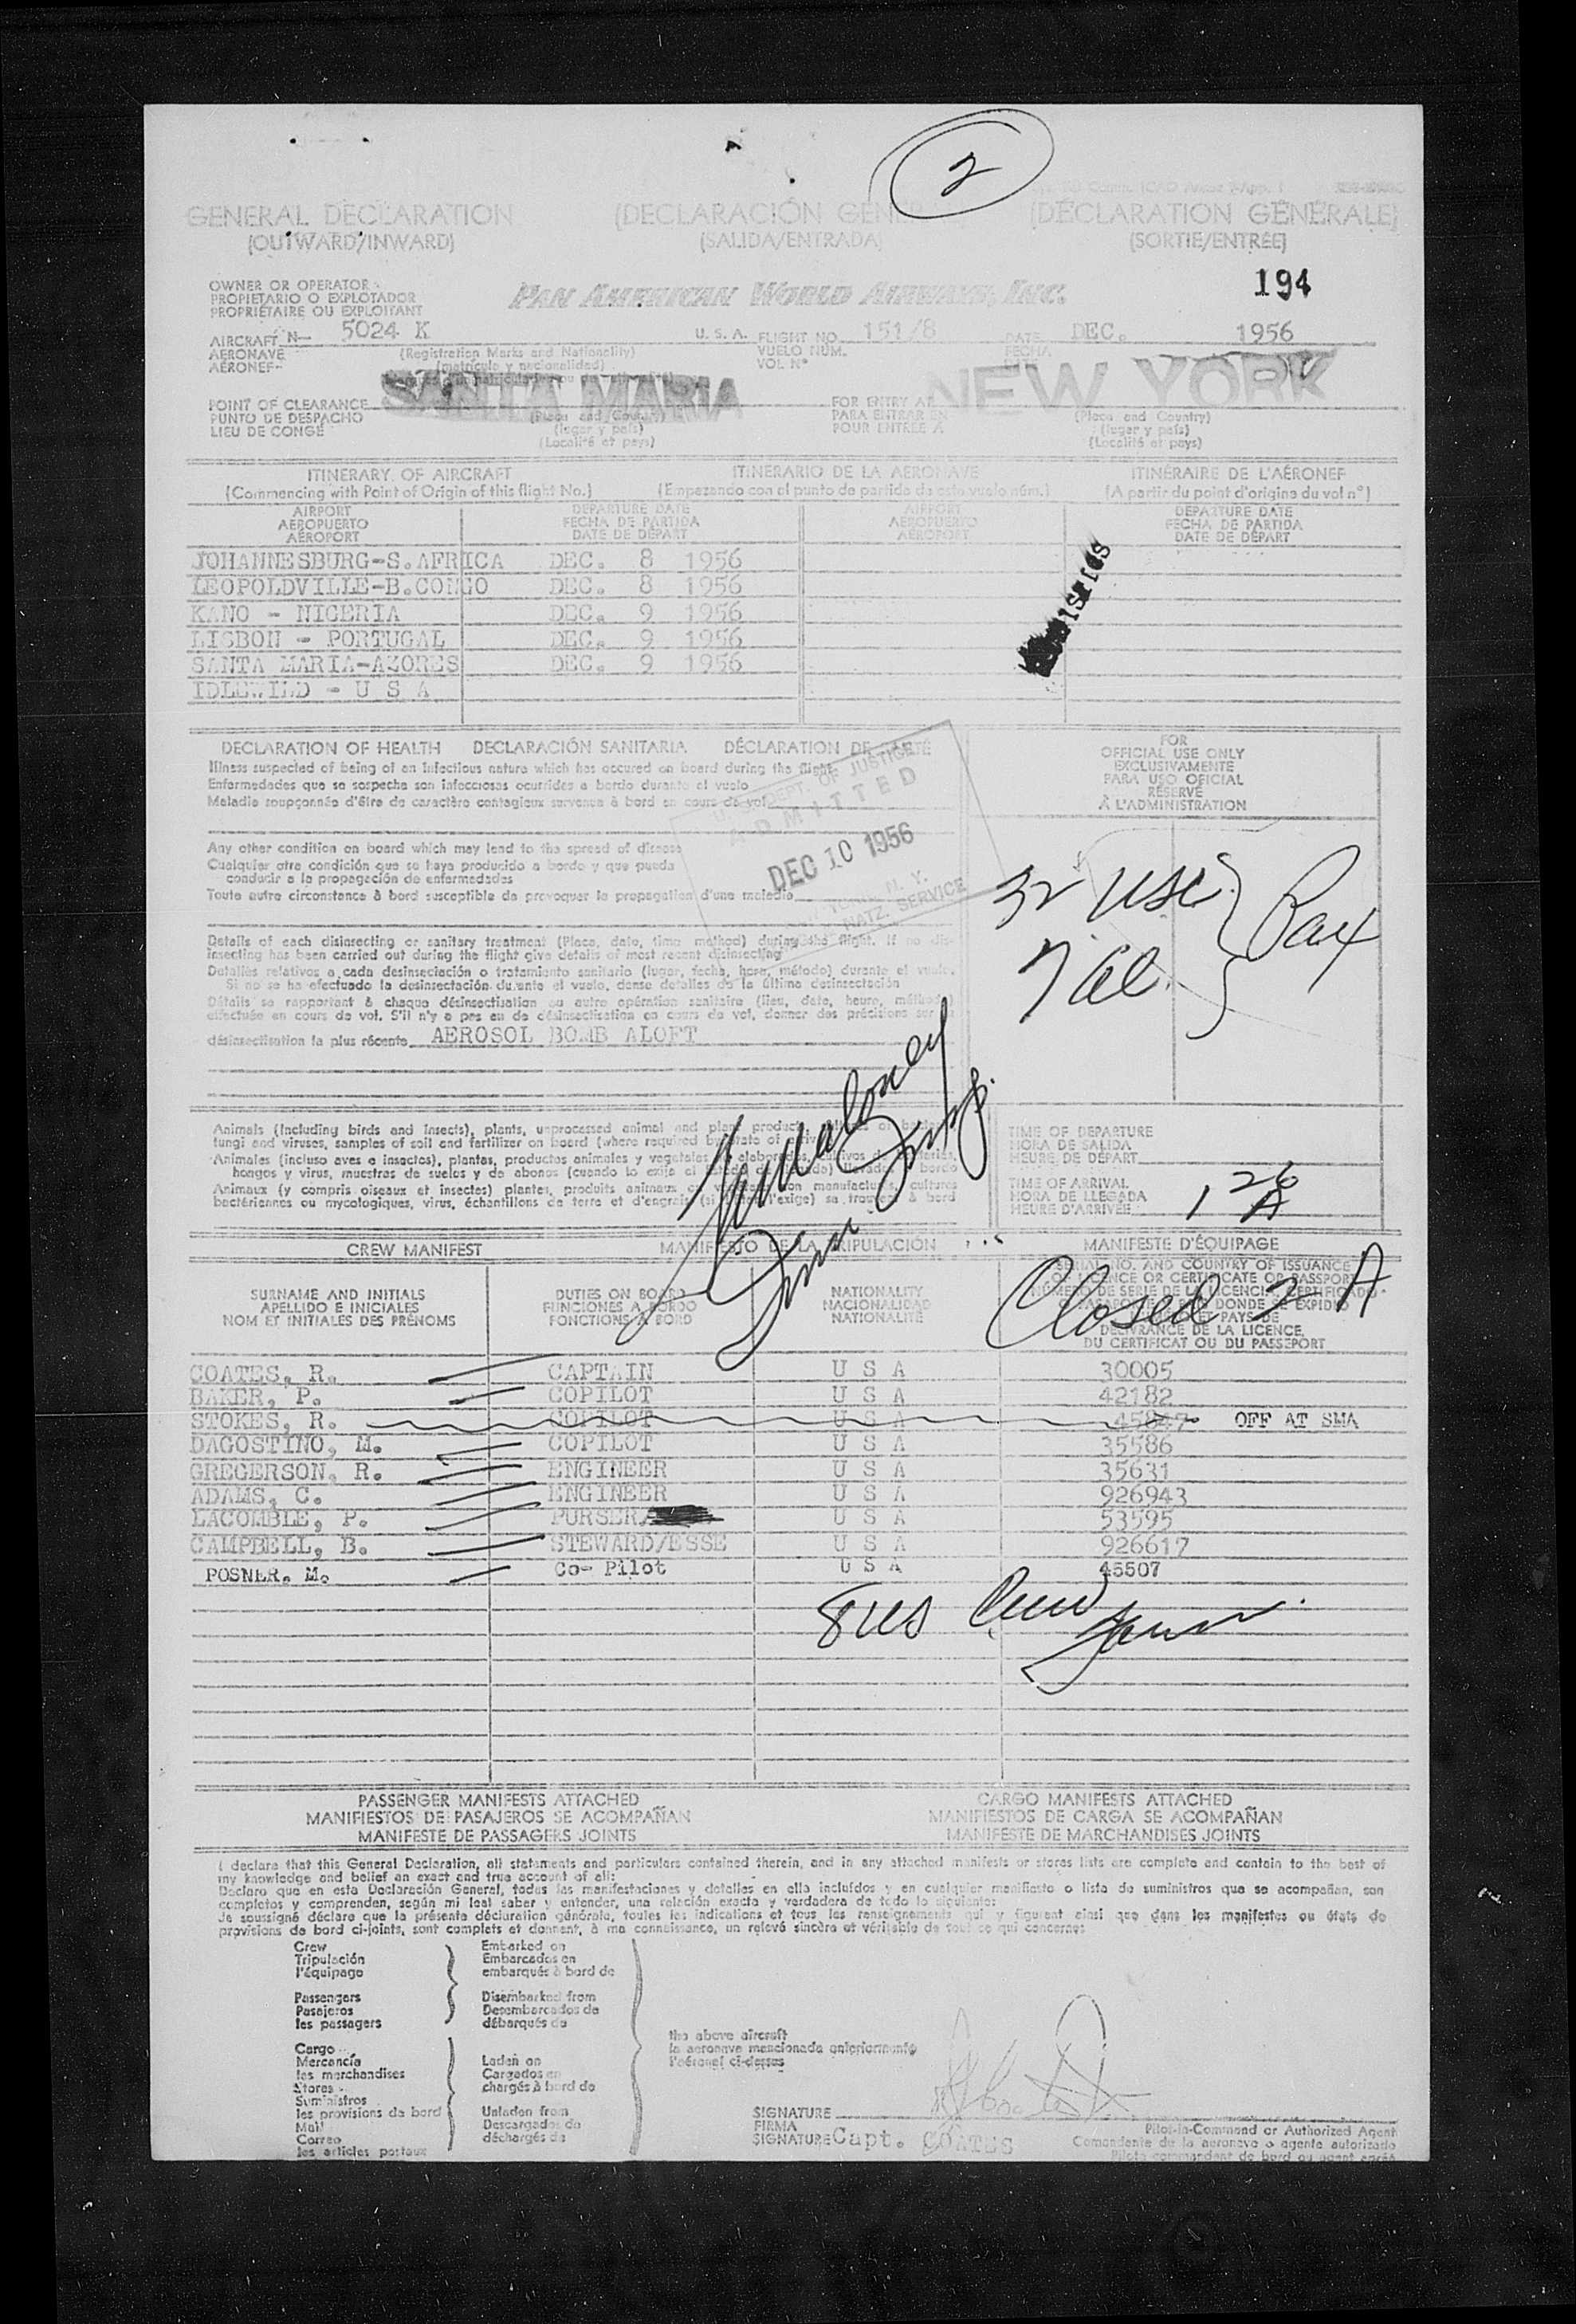 2
GENERAL DECLARATION (DECLARACIÓN (DÉCLARATION GÉNÉRALE)
(OUTWARD/INWARD) (SALIDA/ENTRADA) (SORTIE/ENTRÉE)
194
OWNER OR OPERATOR
PROPIETARIO O EXPLOTADOR
PROPRIÉTAIRE OU EXPLOITANT
PAN AMERICAN WORLD AIRWAYS, INC.
AIRCRAFT N— 5024 K U. S. A. FLIGHT NO. 151/8 DATE DEC. 1956
AERONAVE (Registration Marks and Nationality) VUELO NÚM. FECHA
AÉRONEF (matrícula y nacionalidad) VOL N°
SANTA MARIA NEW YORK
POINT OF CLEARANCE (Place and Country) FOR ENTRY AT (Place and Country)
PUNTO DE DESPACHO (lugar y país) PARA ENTRAR EN (lugar y país)
LIEU DE CONGÉ (Localité et pays) POUR ENTRÉE À (Localité et pays)
ITINERARY OF AIRCRAFT ITINERARIO DE LA AERONAVE ITINÉRAIRE DE L'AÉRONEF
(Commencing with Point of Origin of this flight No.) (Empezando con el punto de partida de este vuelo núm.) (A partir du point d'origine du vol n°)
AIRPORT DEPARTURE DATE AIRPORT DEPARTURE DATE
AEROPUERTO FECHA DE PARTIDA AEROPUERTO FECHA DE PARTIDA
AÉROPORT DATE DE DÉPART AÉROPORT DATE DE DÉPART
JOHANNESBURG-S.AFRICA DEC. 8 1956
LEOPOLDVILLE-B.CONGO DEC. 8 1956
KANO - NIGERIA DEC. 9 1956
LISBON - PORTUGAL DEC. 9 1956
SANTA MARIA-AZORES DEC. 9 1956
IDLEWILD - U S A
DECLARATION OF HEALTH DECLARACIÓN SANITARIA DÉCLARATION DE
Illness suspected of being of an infectious nature which has occured on board during the flight
Enfermedades que se sospeche son infecciosas ocurridas a bordo durante el vuelo
Maladie soupçonnée d'être de caractère contagieux survenue à bord en cours de vol
FOR
OFFICIAL USE ONLY
EXCLUSIVAMENTE
PARA USO OFICIAL
RÉSERVÉ
À L'ADMINISTRATION
U. S. DEPT. OF JUSTICE
ADMITTED
DEC 10 1956
N. Y.
NATZ. SERVICE
Any other condition on board which may lead to the spread of disease
Cualquier otra condición que se haya producido a bordo y que pueda
conducir a la propagación de enfermedades
Toute autre circonstance à bord susceptible de provoquer la propagation d'une maladie
32 USC
7 al.
Pax
Details of each disinsecting or sanitary treatment (Place, date, time method) during the flight. If no dis-
insecting has been carried out during the flight give details of most recent disinsecting
Detalles relativos a cada desinsectación o tratamiento sanitario (lugar, fecha, hora, método) durante el vuelo.
Si no se ha efectuado la desinsectación durante el vuelo, dense detalles de la última desinsectación
Détails se rapportant à chaque désinsectisation ou autre opération sanitaire (lieu, date, heure, méthode)
effectuée en cours de vol. S'il n'y a pas eu de désinsectisation en cours de vol, donner des précisions sur la
désinsectisation la plus récente AEROSOL BOMB ALOFT
Maloney
Imm Insp.
Animals (Including birds and insects), plants, unprocessed animal and plant
fungi and viruses, samples of soil and fertilizer on board (where required by state of
Animales (incluso aves e insectos), plantas, productos animales y vegetales
hongos y virus, muestras de suelos y de abonos (cuando lo exija el bordo
Animaux (y compris oiseaux et insectes) plantes, produits animaux manufacturés, cultures
bactériennes ou mycologiques, virus, échantillons de terre et d'engrais l'exige) se trouvant à bord
TIME OF DEPARTURE
HORA DE SALIDA
HEURE DE DÉPART
TIME OF ARRIVAL
HORA DE LLEGADA
HEURE D'ARRIVÉE 1 26 A
CREW MANIFEST MANIFIESTO DE LA TRIPULACIÓN MANIFESTE D'ÉQUIPAGE
SURNAME AND INITIALS DUTIES ON BOARD NATIONALITY SERIAL NO. AND COUNTRY OF ISSUANCE
APELLIDO E INICIALES FUNCIONES A BORDO NACIONALIDAD
NOM ET INITIALES DES PRÉNOMS FONCTIONS À BORD NATIONALITÉ
Closed 2 A
DÉLIVRANCE DE LA LICENCE,
DU CERTIFICAT OU DU PASSEPORT
COATES, R. CAPTAIN U S A 30005
BAKER, P. COPILOT U S A 42182
STOKES, R. COPILOT U S A 45847 OFF AT SMA
DAGOSTINO, M. COPILOT U S A 35586
GREGERSON, R. ENGINEER U S A 35631
ADAMS, C. ENGINEER U S A 926943
LACOMBLE, P. PURSER U S A 53595
CAMPBELL, B. STEWARD/ESSE U S A 926617
POSNER. M. Co- Pilot U S A 45507
8 US Crew
PASSENGER MANIFESTS ATTACHED CARGO MANIFESTS ATTACHED
MANIFIESTOS DE PASAJEROS SE ACOMPAÑAN MANIFIESTOS DE CARGA SE ACOMPAÑAN
MANIFESTE DE PASSAGERS JOINTS MANIFESTE DE MARCHANDISES JOINTS
I declare that this General Declaration, all statements and particulars contained therein, and in any attached manifests or stores lists are complete and contain to the best of
my knowledge and belief an exact and true account of all:
Declaro que en esta Declaración General, todas las manifestaciones y detalles en ella incluídos y en cualquier manifiesto o lista de suministros que se acompañan, son
completos y comprenden, según mi leal saber y entender, una relación exacta y verdadera de todo lo siguiente:
Je soussigné déclare que la présente déclaration générale, toutes les indications et tous les renseignements qui y figurent ainsi que dans les manifestes ou états de
provisions de bord ci-joints, sont complets et donnent, à ma connaissance, un relevé sincère et véritable de tout ce qui concerne:
Crew Embarked on
Tripulación Embarcados en
l'équipage embarqués à bord de
Passengers Disembarked from
Pasajeros Desembarcados de
les passagers débarqués de
the above aircraft
la aeronave mencionada anteriormente
l'aéronef ci-dessus
Cargo
Mercancía Laden on
les marchandises Cargados en
Stores chargés à bord de
Suministros
les provisions de bord Unladen from
Mail Descargados de
Correo déchargés de
les articles postaux
SIGNATURE
FIRMA Pilot-in-Command or Authorized Agent
SIGNATURE Capt. COATES Comandante de la aeronave o agente autorizado
Pilote commandant de bord ou agent agréé